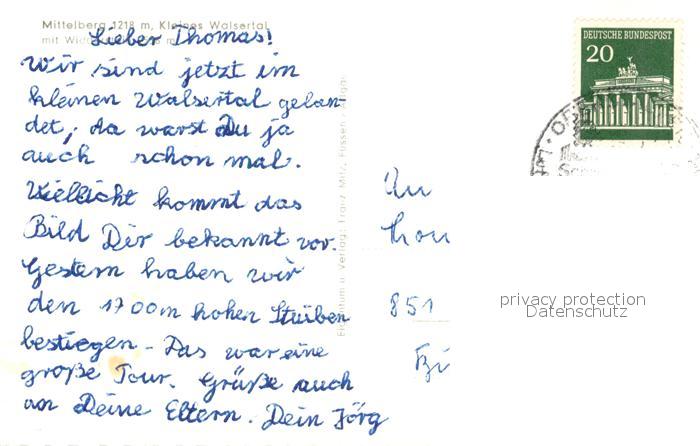 Mittelberg 1218 m, Kleines Walsertal
mit
Lieber Thomas!
Wir sind jetzt im
kleinen Walsertal gelan-
det, da warst Du ja
auch schon mal.
Vielleicht kommt das
Bild Dir bekannt vor.
Gestern haben wir
den 1700m hohen Stuiben
bestiegen. Das war eine
große Tour. Grüße auch
an Deine Eltern. Dein Jörg
Eigentum u. Verlag: Franz Milz, Füssen
DEUTSCHE BUNDESPOST
20
An
851
privacy protection
Datenschutz